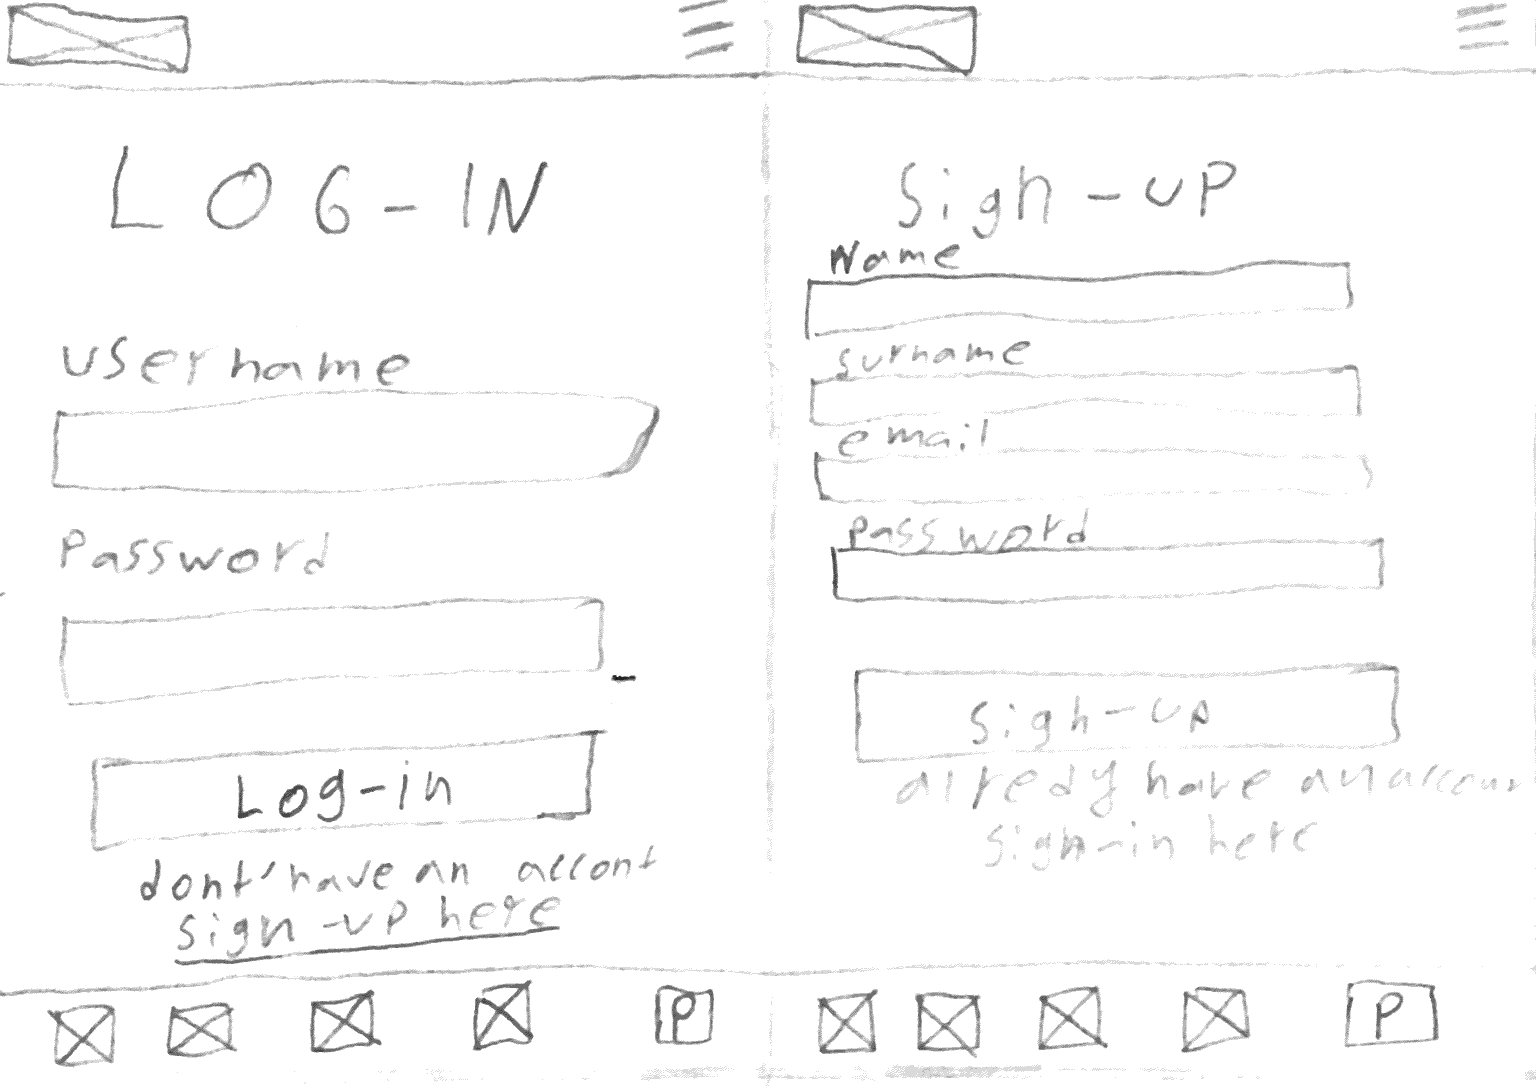 LOG-IN
username
Password
Log-in
dont' have an accont
sign-up here
P
Sign-up
Name
surname
email
password
Sign-up
alredy have an accoun
sign-in here
P